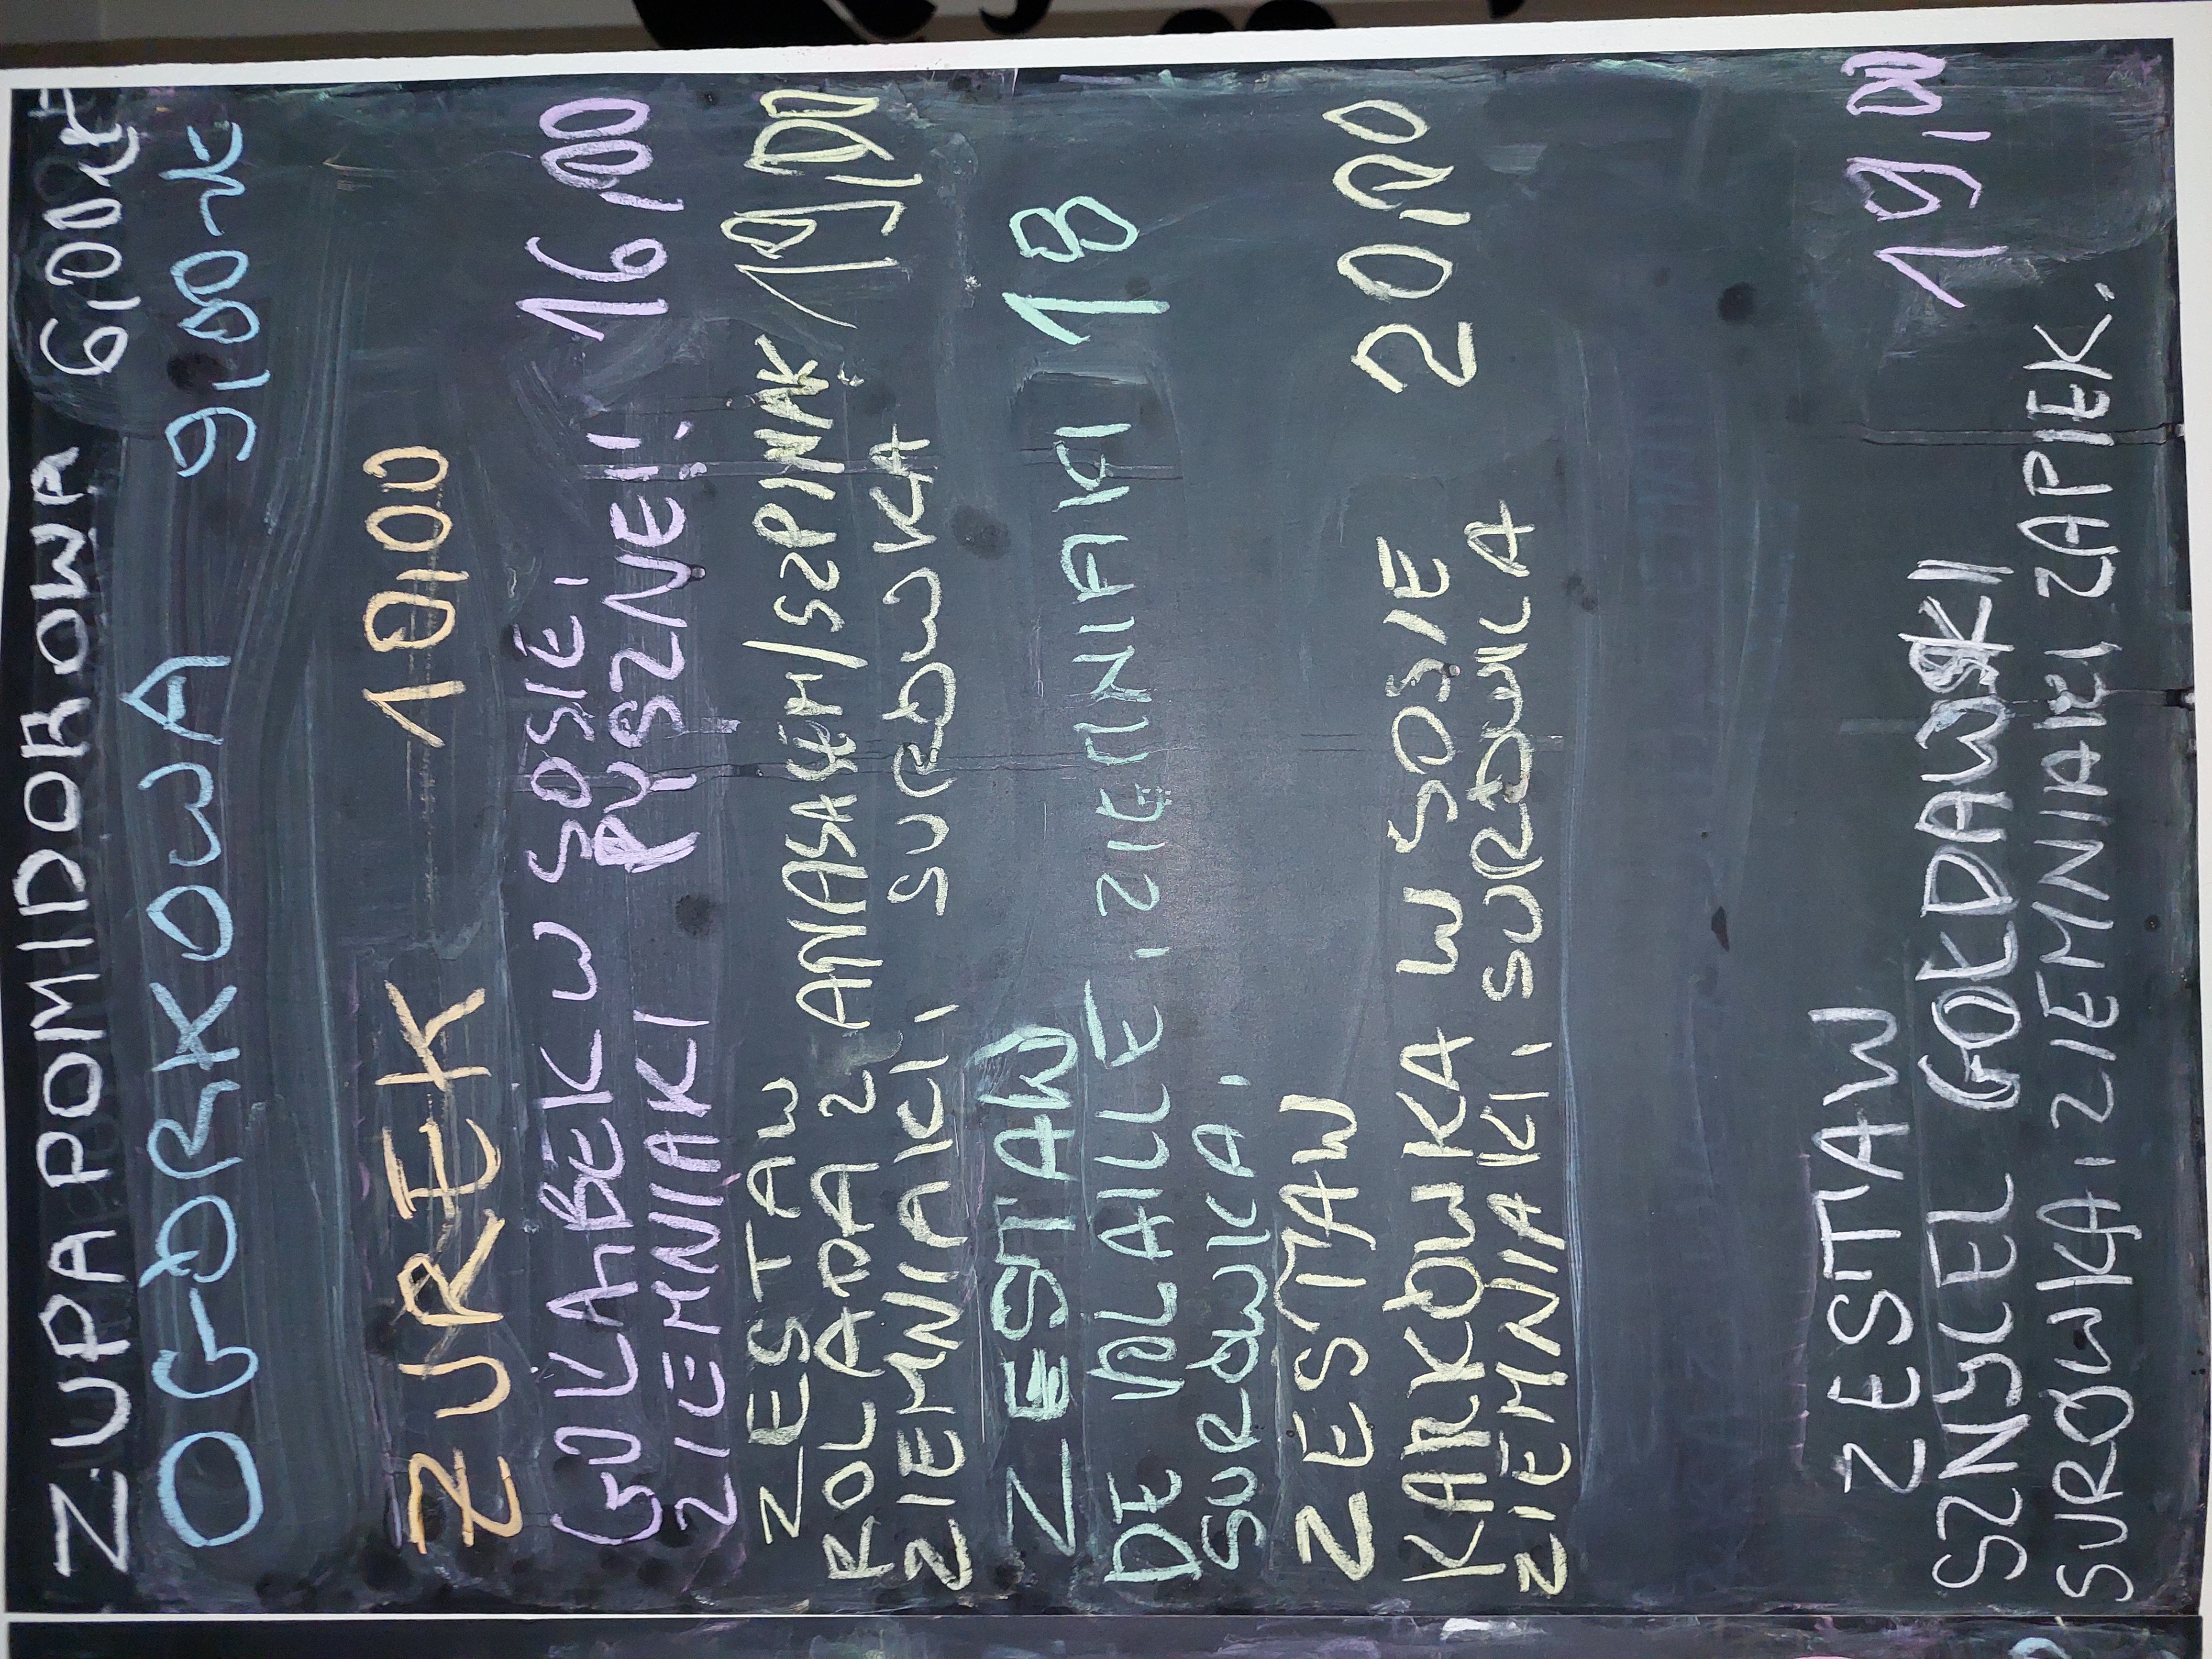 ZUPA POMIDOROWA 6,00zł
OGÓRKOWA 9,00zł
ŻUREK 10,00
GOŁĄBEK W SOSIE,
ZIEMNIAKI PYSZNE!! 16,00
ZESTAW
ROLADA Z ANANASEM/SZPINAK 19,00
ZIEMNIAKI, SURÓWKA
ZESTAW
DE VOLAILLE, ZIEMNIAKI 18
SURÓWKA,
ZESTAW
KARKÓWKA W SOSIE 20,00
ZIEMNIAKI, SURÓWKA
ZESTAW
SZNYCEL GOŁDAWSKI 19,00
SURÓWKA, ZIEMNIAKI ZAPIEK.